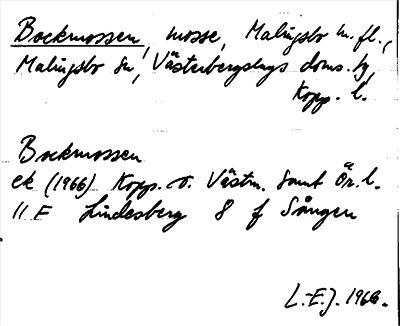 Bockmossen, mosse, Malingsbo m.fl.,
Malingsbo sn, Västerbergslags doms.tg,
Kopp. l.
Bockmossen
ek (1966) Kopp. o. Västm. samt Ör. l.
11 E Lindesberg 8 f Sången
L.-E.J. 1966.